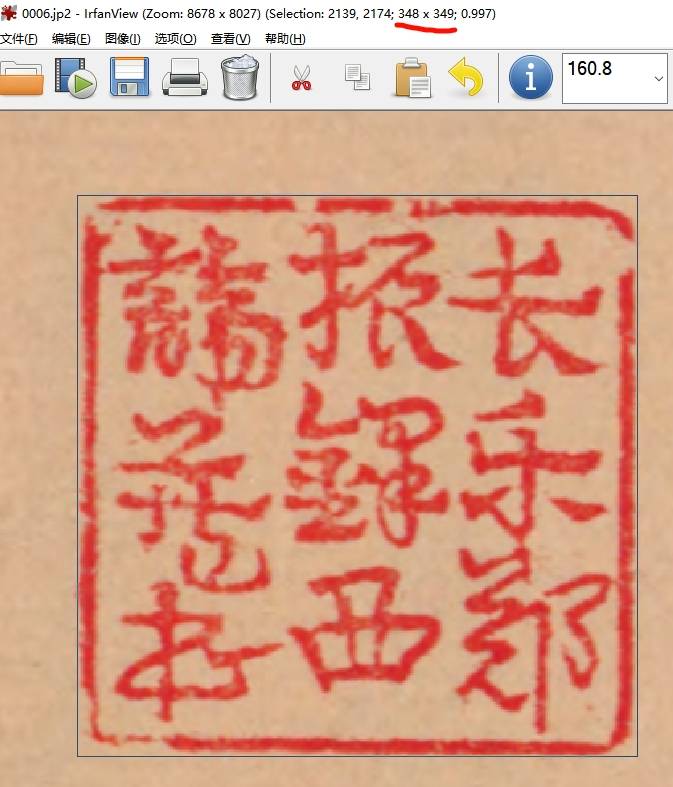 0006.jp2 - IrfanView (Zoom: 8678 x 8027) (Selection: 2139, 2174; 348 x 349; 0.997)
文件(F) 编辑(E) 图像(I) 选项(O) 查看(V) 帮助(H)
160.8
长乐郑
振鐸西
諦藏书